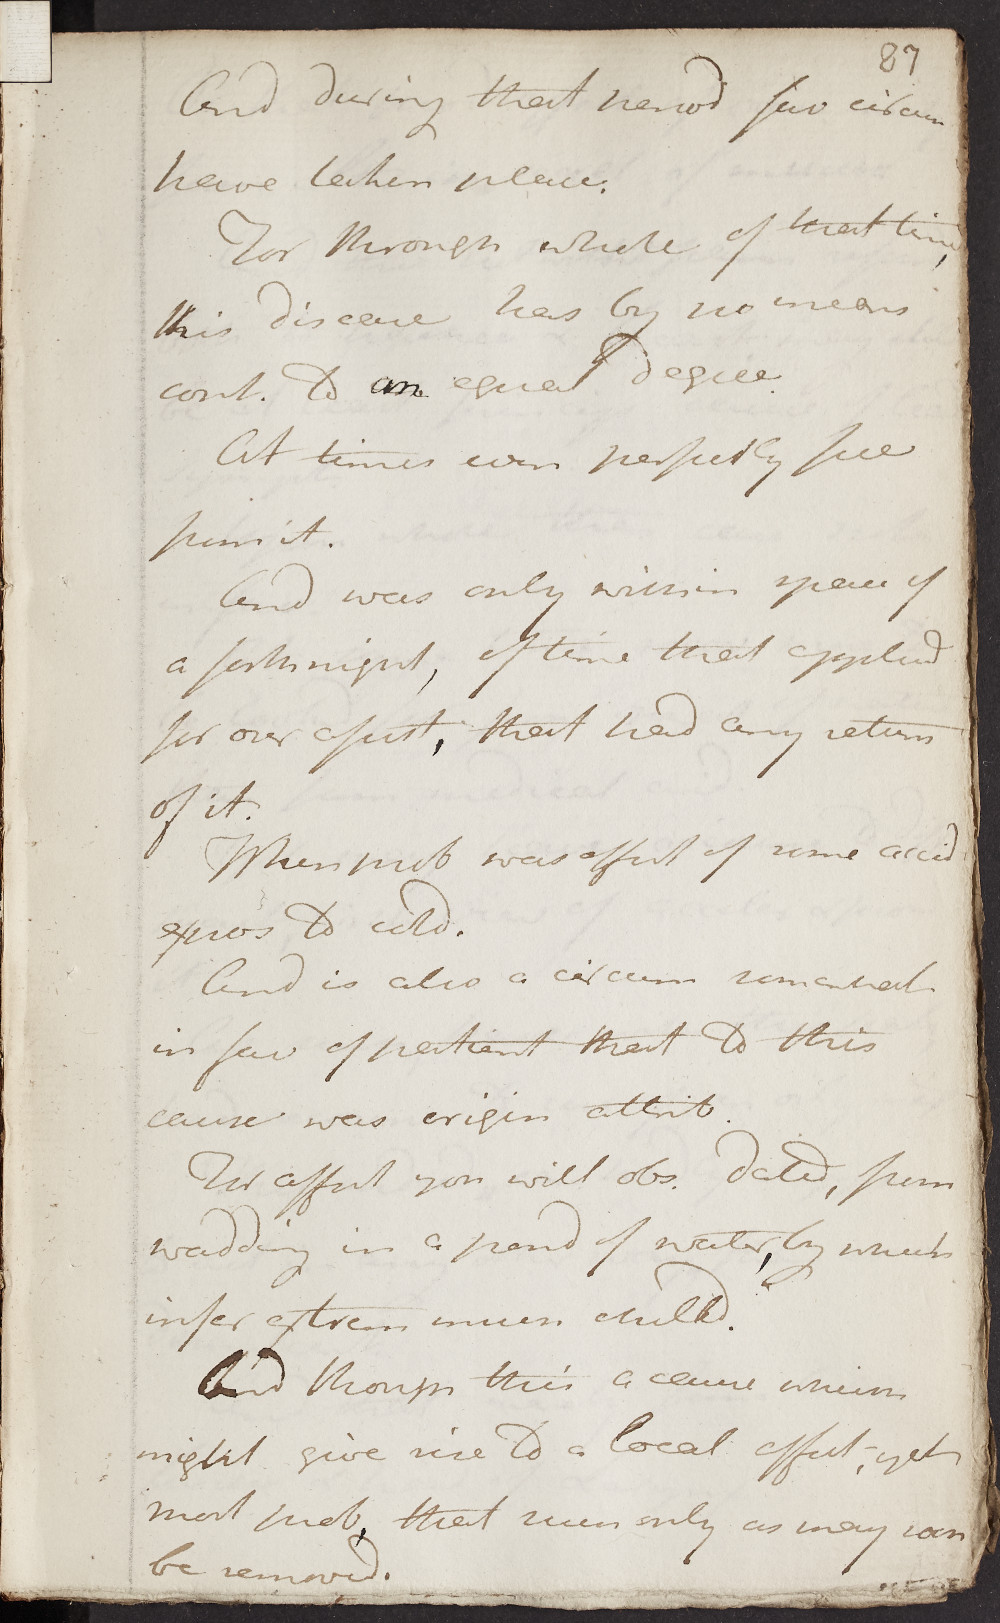 87
And during that period fav circum
have taken place.
For through whole of that time,
this disease has by no means
cont. to an equal degree.
At times even perfectly free
from it.
And was only within space of
a fortnight, of time that applied
for our assist, that had any return
of it.
When prob was effect of some accid
expos to cold.
And is also a circum
in fav of patient that to this
cause was origin attrib.
For affect you will obs. dated, from
wadding in a pond of water, by which
infer extrem much chilld.
And though this a cause which
might give rise to a local affect, yet
most prob, that such only as may soon
be removed.